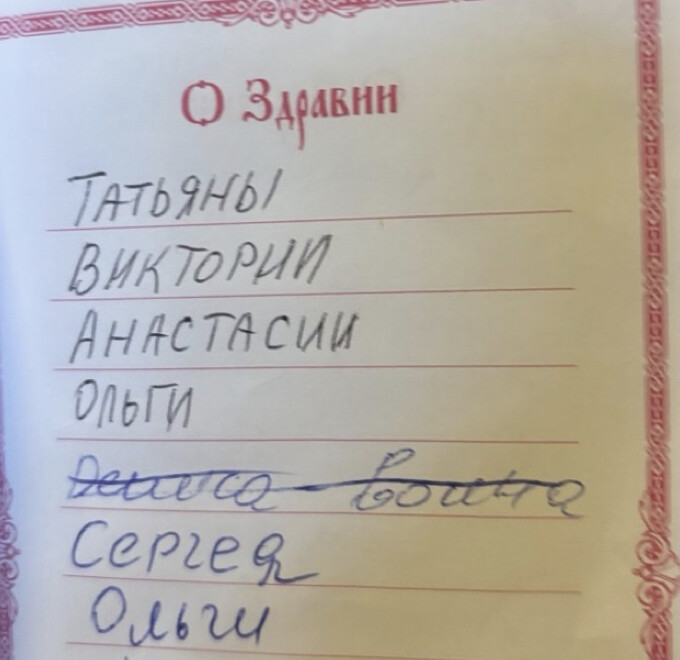 О Здравии
ТАТЬЯНЫ
ВИКТОРИИ
АНАСТАСИИ
ОЛЬГИ
Дениса - Воина
Сергея
Ольги